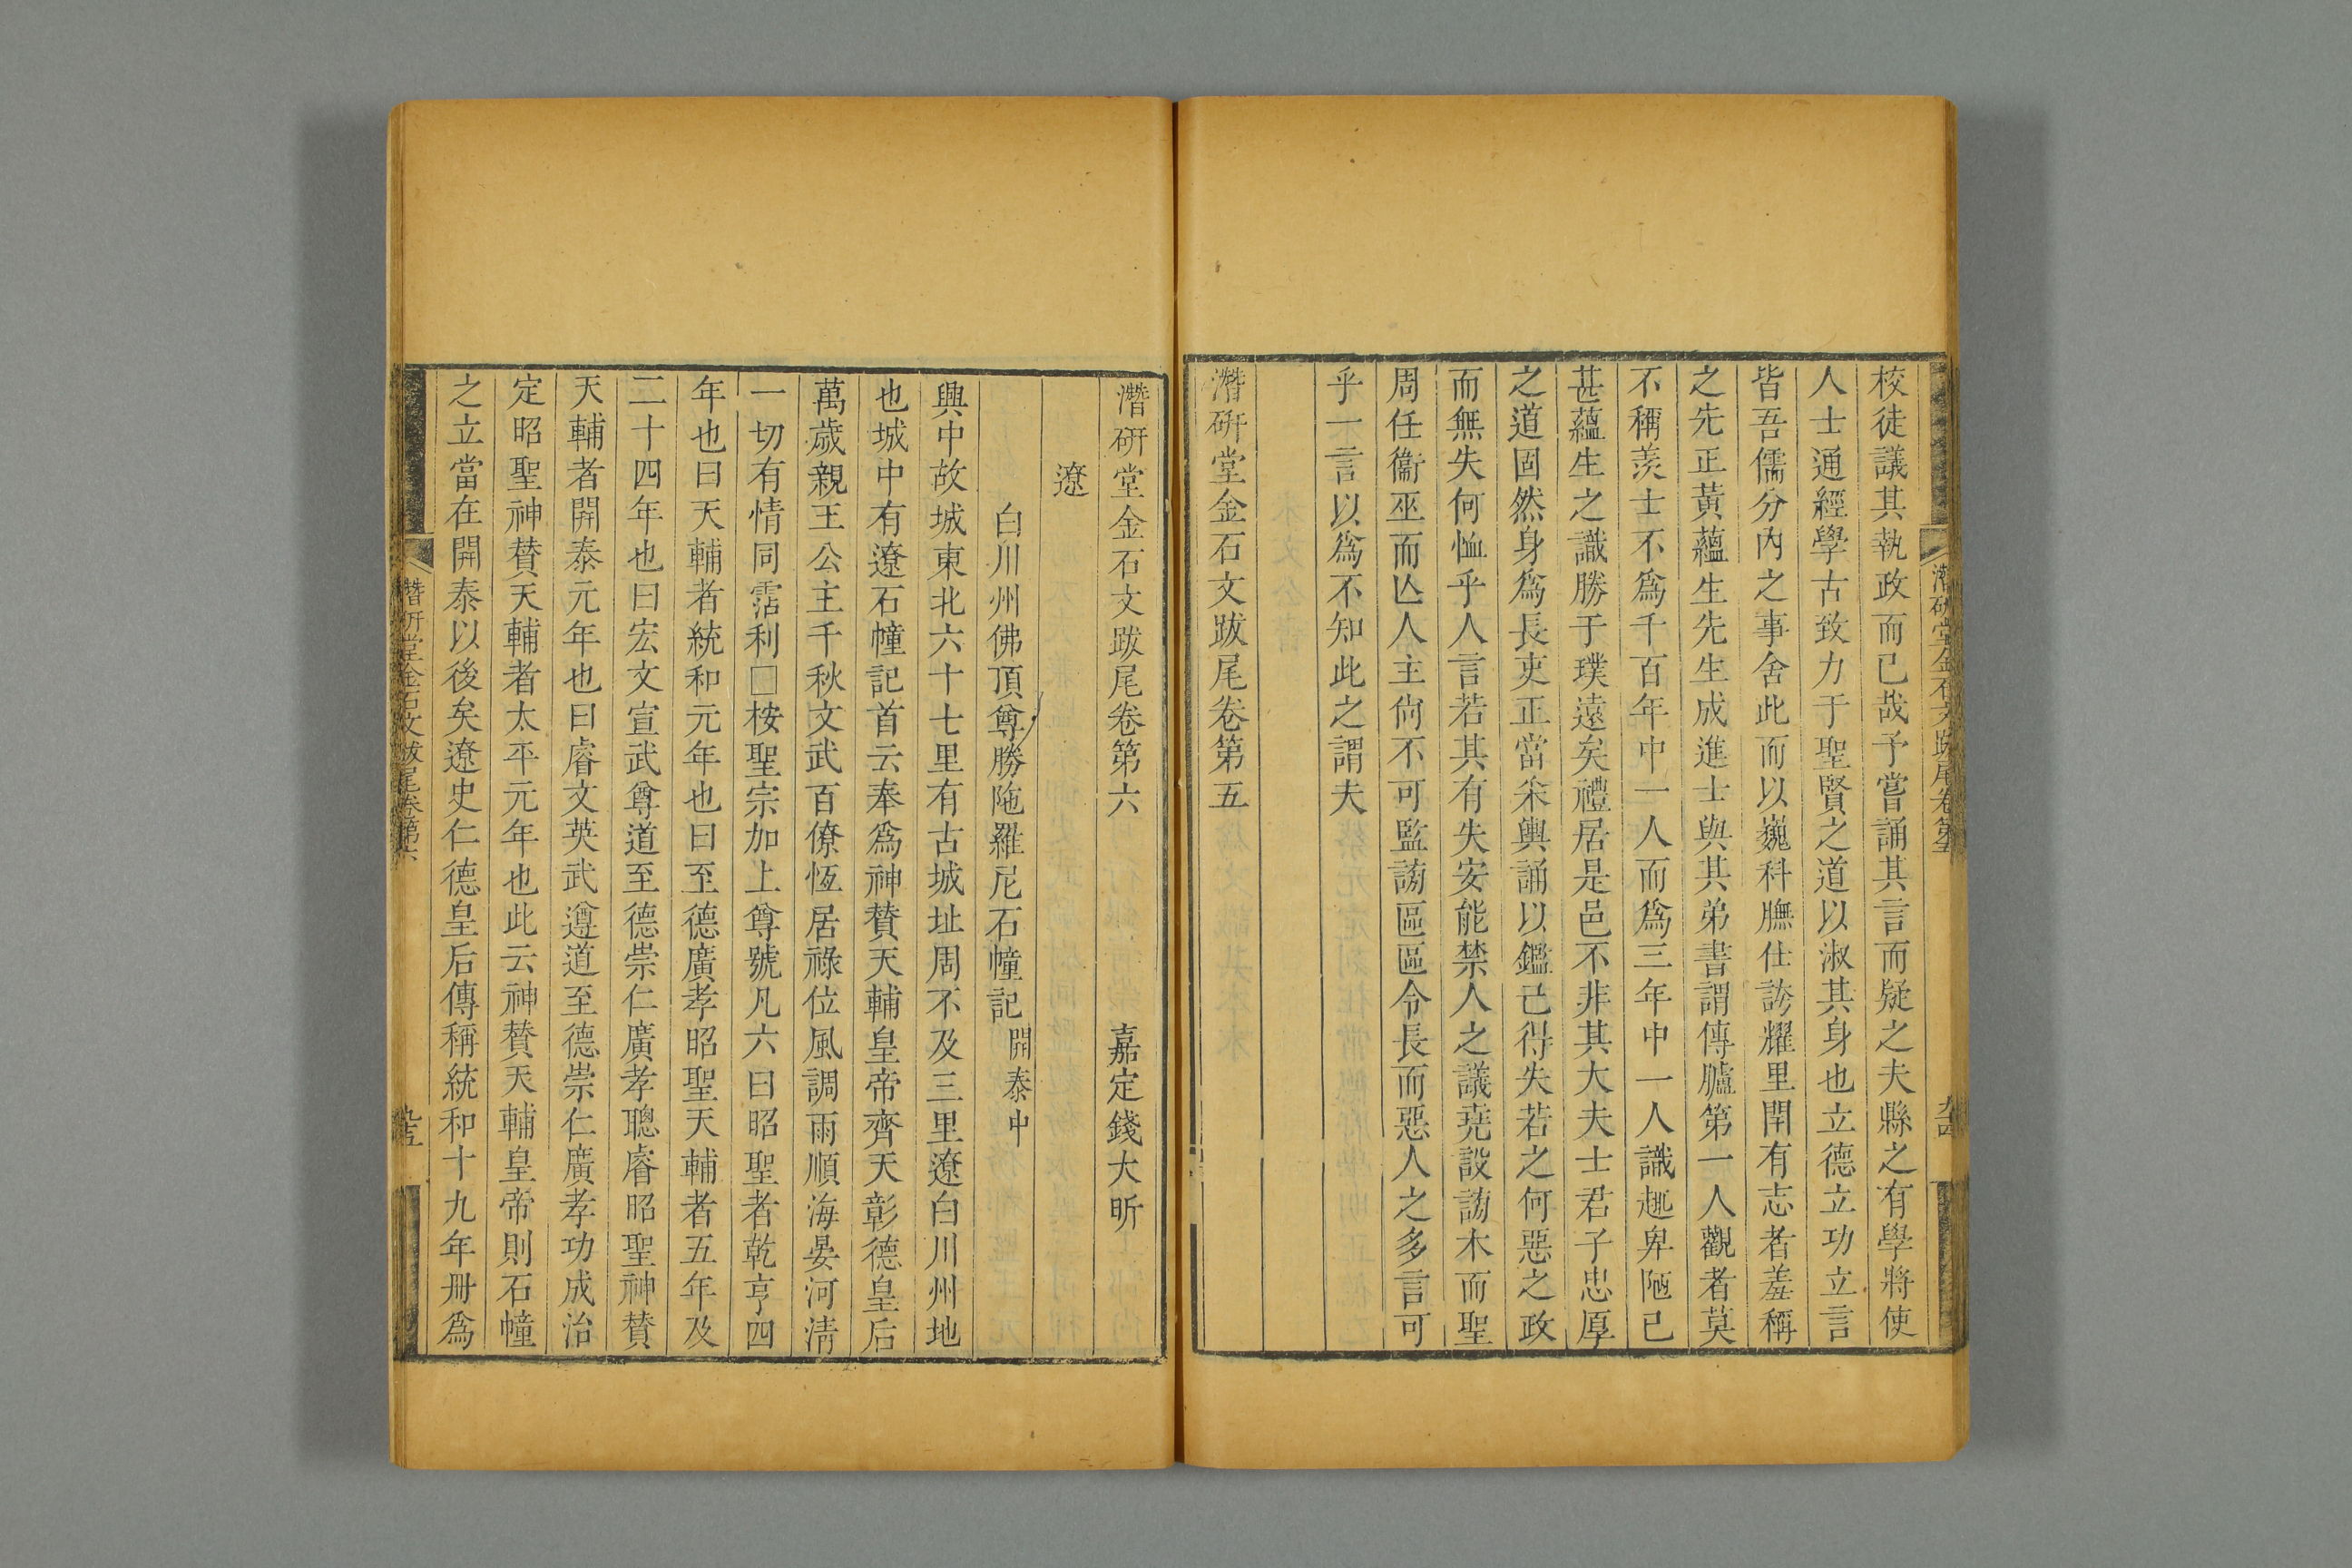 校徒議其執政而已哉予嘗誦其言而疑之夫縣之有學將使
人士通經學古致力于聖賢之道以淑其身也立德立功立言
皆吾儒分內之事舍此而以巍科膴仕誇耀里閈有志者羞稱
之先正黃蘊生先生成進士與其弟書謂傳臚第一人觀者莫
不稱羨士不爲千百年中一人而爲三年中一人識趣卑陋已
甚蘊生之識勝于璞遠矣禮居是邑不非其大夫士君子忠厚
之道固然身爲長吏正當采輿誦以鑑己得失若之何惡之政
而無失何恤乎人言若其有失安能禁人之議堯設謗木而聖
周任衞巫而亾人主尙不可監謗區區令長而惡人之多言可
乎一言以爲不知此之謂夫
潛硏堂金石文跋尾卷第五
潛硏堂金石文跋尾卷第五
潛硏堂金石文跋尾卷第六 嘉定錢大昕
遼
白川州佛頂尊勝陁羅尼石幢記 開泰中
興中故城東北六十七里有古城址周不及三里遼白川州地
也城中有遼石幢記首云奉爲神贊天輔皇帝齊天彰德皇后
萬歲親王公主千秋文武百僚恆居祿位風調雨順海晏河淸
一切有情同霑利□桉聖宗加上尊號凡六曰昭聖者乾亨四
年也曰天輔者統和元年也曰至德廣孝昭聖天輔者五年及
二十四年也曰宏文宣武尊道至德崇仁廣孝聰睿昭聖神贊
天輔者開泰元年也曰睿文英武遵道至德崇仁廣孝功成治
定昭聖神贊天輔者太平元年也此云神贊天輔皇帝則石幢
之立當在開泰以後矣遼史仁德皇后傳稱統和十九年冊爲
潛硏堂金石文跋尾卷第六